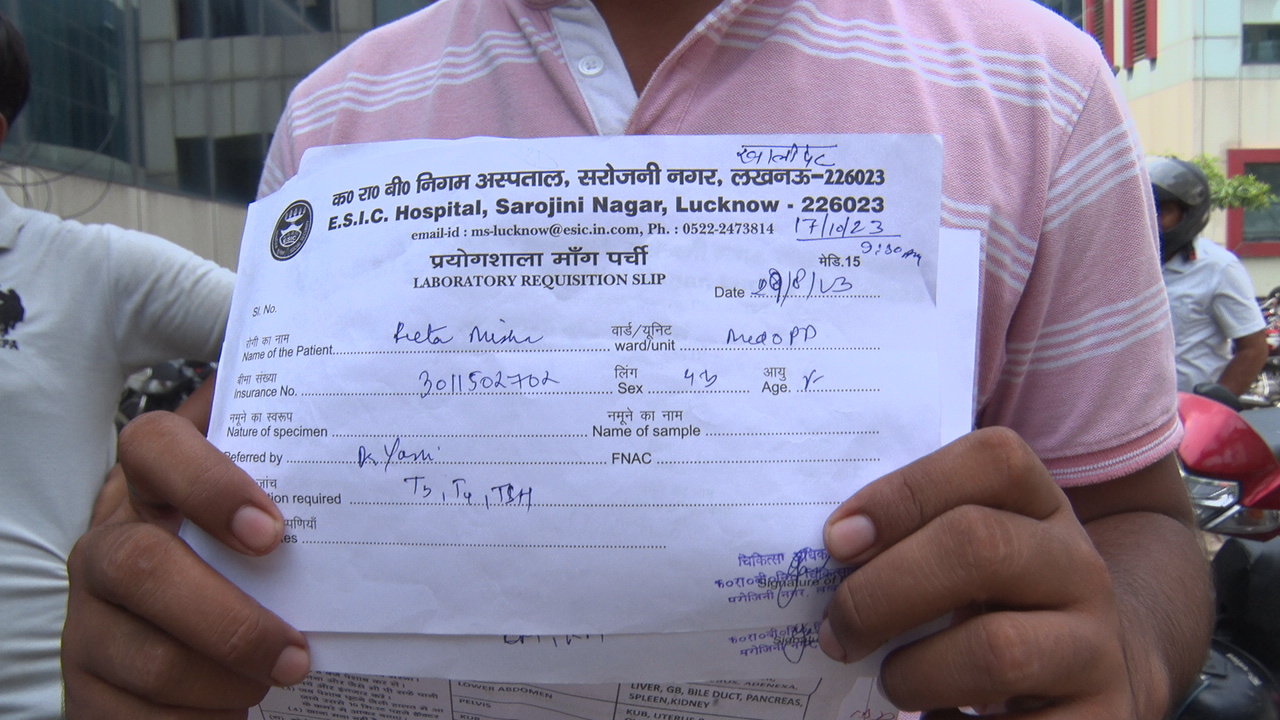 खाली पेट
क० रा० बी० निगम अस्पताल, सरोजनी नगर, लखनऊ–226023
E.S.I.C. Hospital, Sarojini Nagar, Lucknow - 226023
email-id : ms-lucknow@esic.in.com, Ph. : 0522-2473814 17/10/23
9:30AM
प्रयोगशाला माँग पर्ची मेडि.15
LABORATORY REQUISITION SLIP
Date /8/23
Sl. No.
रोगी का नाम वार्ड/यूनिट
Name of the Patient Reeta Mishra ward/unit Med OPD
बीमा संख्या लिंग आयु
Insurance No. 3011502702 Sex 43 Age.
नमूने का स्वरूप नमूने का नाम
Nature of specimen Name of sample
Referred by Dr FNAC
जांच
tion required T3, T4, TSH
चिकित्सा अधिक
क०रा०बी०निगम चिकित्स
Signature of
सरोजिनी नगर, लख
क०रा०बी०
सरोजिनी
LOWER ABDOMEN
PELVIS
KUB
LIVER, GB, BILE DUCT, PANCREAS,
SPLEEN,KIDNEY
KUB, UTERUS